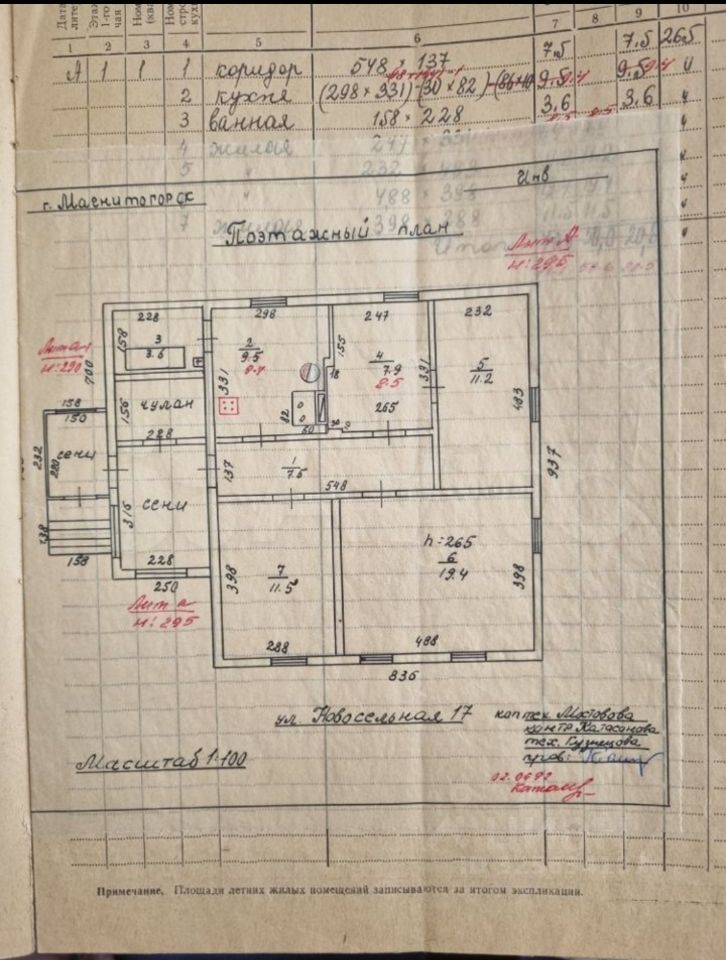 Дата
лите
Этаж
1-го
чая
Ном
(ква
Ном
стро
кух
7 8 9 10
1 2 3 4 5 6
А 1 1 1 коридор 548 × 137 7.5 7.5 265
2 кухня (298 × 331) - (30 × 82) 9.5 9.5 "
3 ванная 158 × 228 3.6 3.6 "
4 жилая 247 ×
5 " 232 ×
" 488 × 398
7 жилая 398 × 288
г. Магнитогорск
Инв
Поэтажный план
Лит А
н: 295
Лит а
н: 290
228
158
3
3.6
700
298
2
9.5
331
82
60
247
155
18
4
7.9
8.5
331
265
30
232
5
11.2
483
937
156
чулан
228
158
150
сени
232
220
138
158
315
сени
228
250
Лит а
н: 295
137
1
7.5
548
398
7
11.5
288
h=265
6
19.4
398
488
836
ул. Новосельная 17
коп тех. Мостовова
контр Катасонова
тех. Кузнецова
пров:
Масштаб 1:100
02.06 92
Примечание. Площади летних жилых помещений записываются за итогом экспликации.